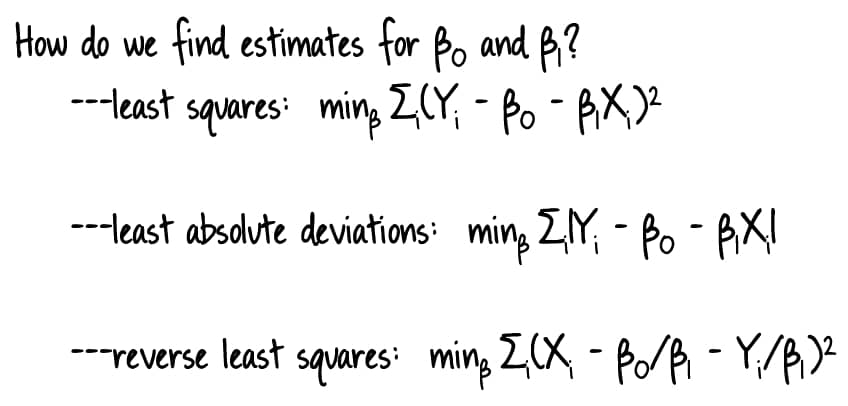 How do we find estimates for β₀ and β₁?
---least squares: min_β Σᵢ(Yᵢ - β₀ - β₁Xᵢ)²
---least absolute deviations: min_β Σᵢ|Yᵢ - β₀ - β₁Xᵢ|
---reverse least squares: min_β Σᵢ(Xᵢ - β₀/β₁ - Yᵢ/β₁)²